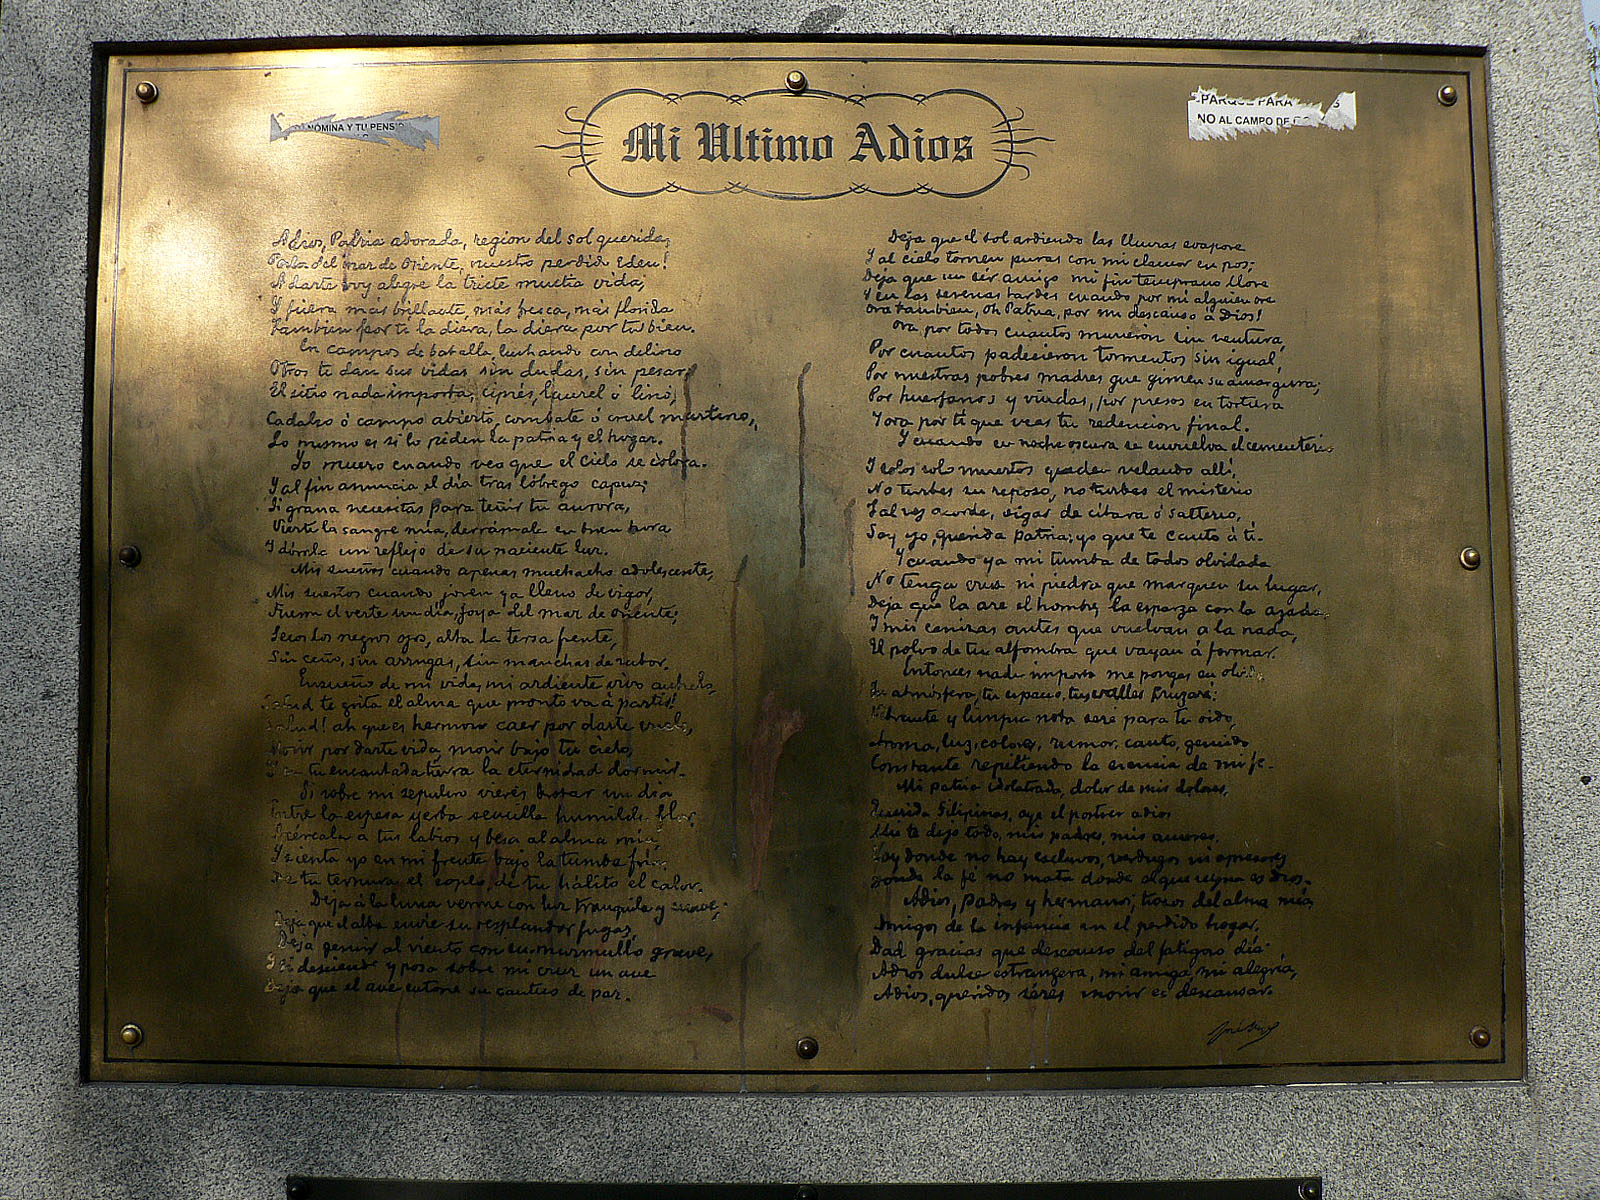 Mi Ultimo Adios
NOMINA Y TU PENS
PARQUE PARA
NO AL CAMPO DE
Adios, Patria adorada, region del sol querida,
Perla del mar de Oriente, nuestro perdido Eden!
A darte voy alegre la triste mustia vida,
Y fuera más brillante, más fresca, más florida
Tambien por ti la diera, la diera por tu bien.
En campos de batalla, luchando con delirio
Otros te dan sus vidas sin dudas, sin pesar;
El sitio nada importa, ciprés, laurel ó lirio,
Cadalso ó campo abierto, combate ó cruel martirio,
Lo mismo es si lo piden la patria y el hogar.
Yo muero cuando veo que el cielo se colora.
Y al fin anuncia el día tras lóbrego capuz;
Si grana necesitas para teñir tu aurora,
Vierte la sangre mía, derrámala en buen hora
Y dórela un reflejo de su naciente luz.
Mis sueños cuando apenas muchacho adolescente,
Mis sueños cuando joven ya lleno de vigor,
Fueron el verte un día, joya del mar de oriente;
Secos los negros ojos, alta la tersa frente,
Sin ceño, sin arrugas, sin manchas de rubor.
Ensueño de mi vida, mi ardiente vivo anhelo,
Salud te grita el alma que pronto va á partir!
Salud! ah que es hermoso caer por darte vuelo,
Morir por darte vida, morir bajo tu cielo,
Y en tu encantada tierra la eternidad dormir.
Si sobre mi sepulcro vieres brotar un dia
Entre la espesa yerba sencilla humilde flor,
Acércala a tus labios y besa al alma mía,
Y sienta yo en mi frente bajo la tumba fría
De tu ternura el soplo, de tu hálito el calor.
Deja á la luna verme con luz tranquila y suave;
Deja que el alba envíe su resplandor fugaz,
Deja gemir al viento con su murmullo grave,
Y si desciende y posa sobre mi cruz un ave
Deja que el ave entone su cantico de paz.
Deja que el sol ardiendo las lluvias evapore
Y al cielo tornen puras con mi clamor en pos;
Deja que un sér amigo mi fin temprano llore
Y en las serenas tardes cuando por mi alguien ore
Ora tambien, Oh Patria, por mi descanso á Dios!
Ora por todos cuantos murieron sin ventura,
Por cuantos padecieron tormentos sin igual,
Por nuestras pobres madres que gimen su amargura;
Por huerfanos y viudas, por presos en tortura
Y ora por ti que veas tu redencion final.
Y cuando en noche oscura se envuelva el cementerio
Y solos solo muertos queden velando allí,
No turbes su reposo, no turbes el misterio
Tal vez acorde, oigas de cítara ó salterio,
Soy yo, querida patria; yo que te canto á ti.
Y cuando ya mi tumba de todos olvidada
No tenga cruz ni piedra que marquen su lugar,
Deja que la are el hombre, la esparza con la azada,
Y mis cenizas antes que vuelvan a la nada,
El polvo de tu alfombra que vayan á formar.
Entonces nada importa me pongas en olvido,
Tu atmósfera, tu espacio, tus valles cruzaré:
Vibrante y limpia nota seré para tu oido,
Aroma, luz, colores, rumor, canto, gemido
Constante repitiendo la esencia de mi fe.
Mi patria idolatrada, dolor de mis dolores,
Querida Filipinas, oye el postrer adios
Ahi te dejo todo, mis padres, mis amores.
Voy donde no hay esclavos, verdugos ni opresores
Donde la fé no mata donde el que reyna es Dios.
Adios, padres y hermanos, trozos del alma mía
Amigos de la infancia en el perdido hogar.
Dad gracias que descanso del fatigoso día
Adios dulce estrangera, mi amiga, mi alegría,
Adios, queridos séres morir es descansar.